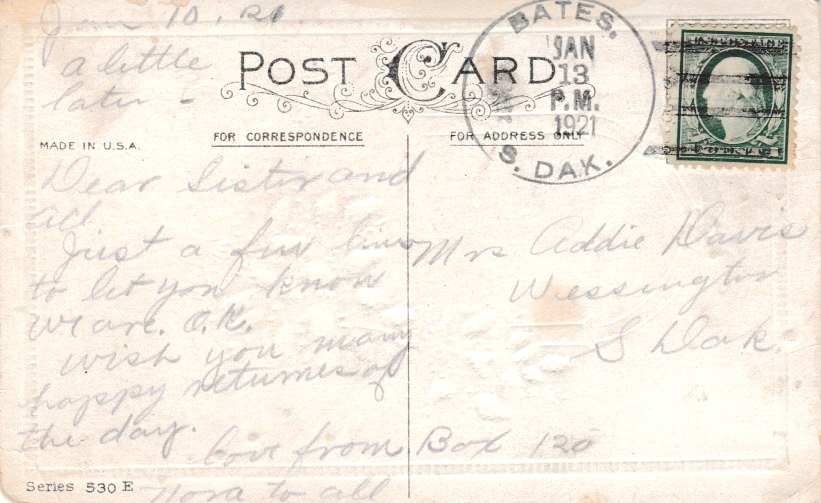 Jan 10. 21
a little
later -
POST CARD
BATES.
JAN
13
P.M.
1921
S. DAK.
MADE IN U.S.A.
FOR CORRESPONDENCE
FOR ADDRESS ONLY
Dear Sister and
all
Just a few lines
to let you know
we are. O.K.
wish you many
happy returnes of
the day.
love from
Nora to all
Mrs Addie Davis
Wessington
S Dak.
Box 120
Series 530 E